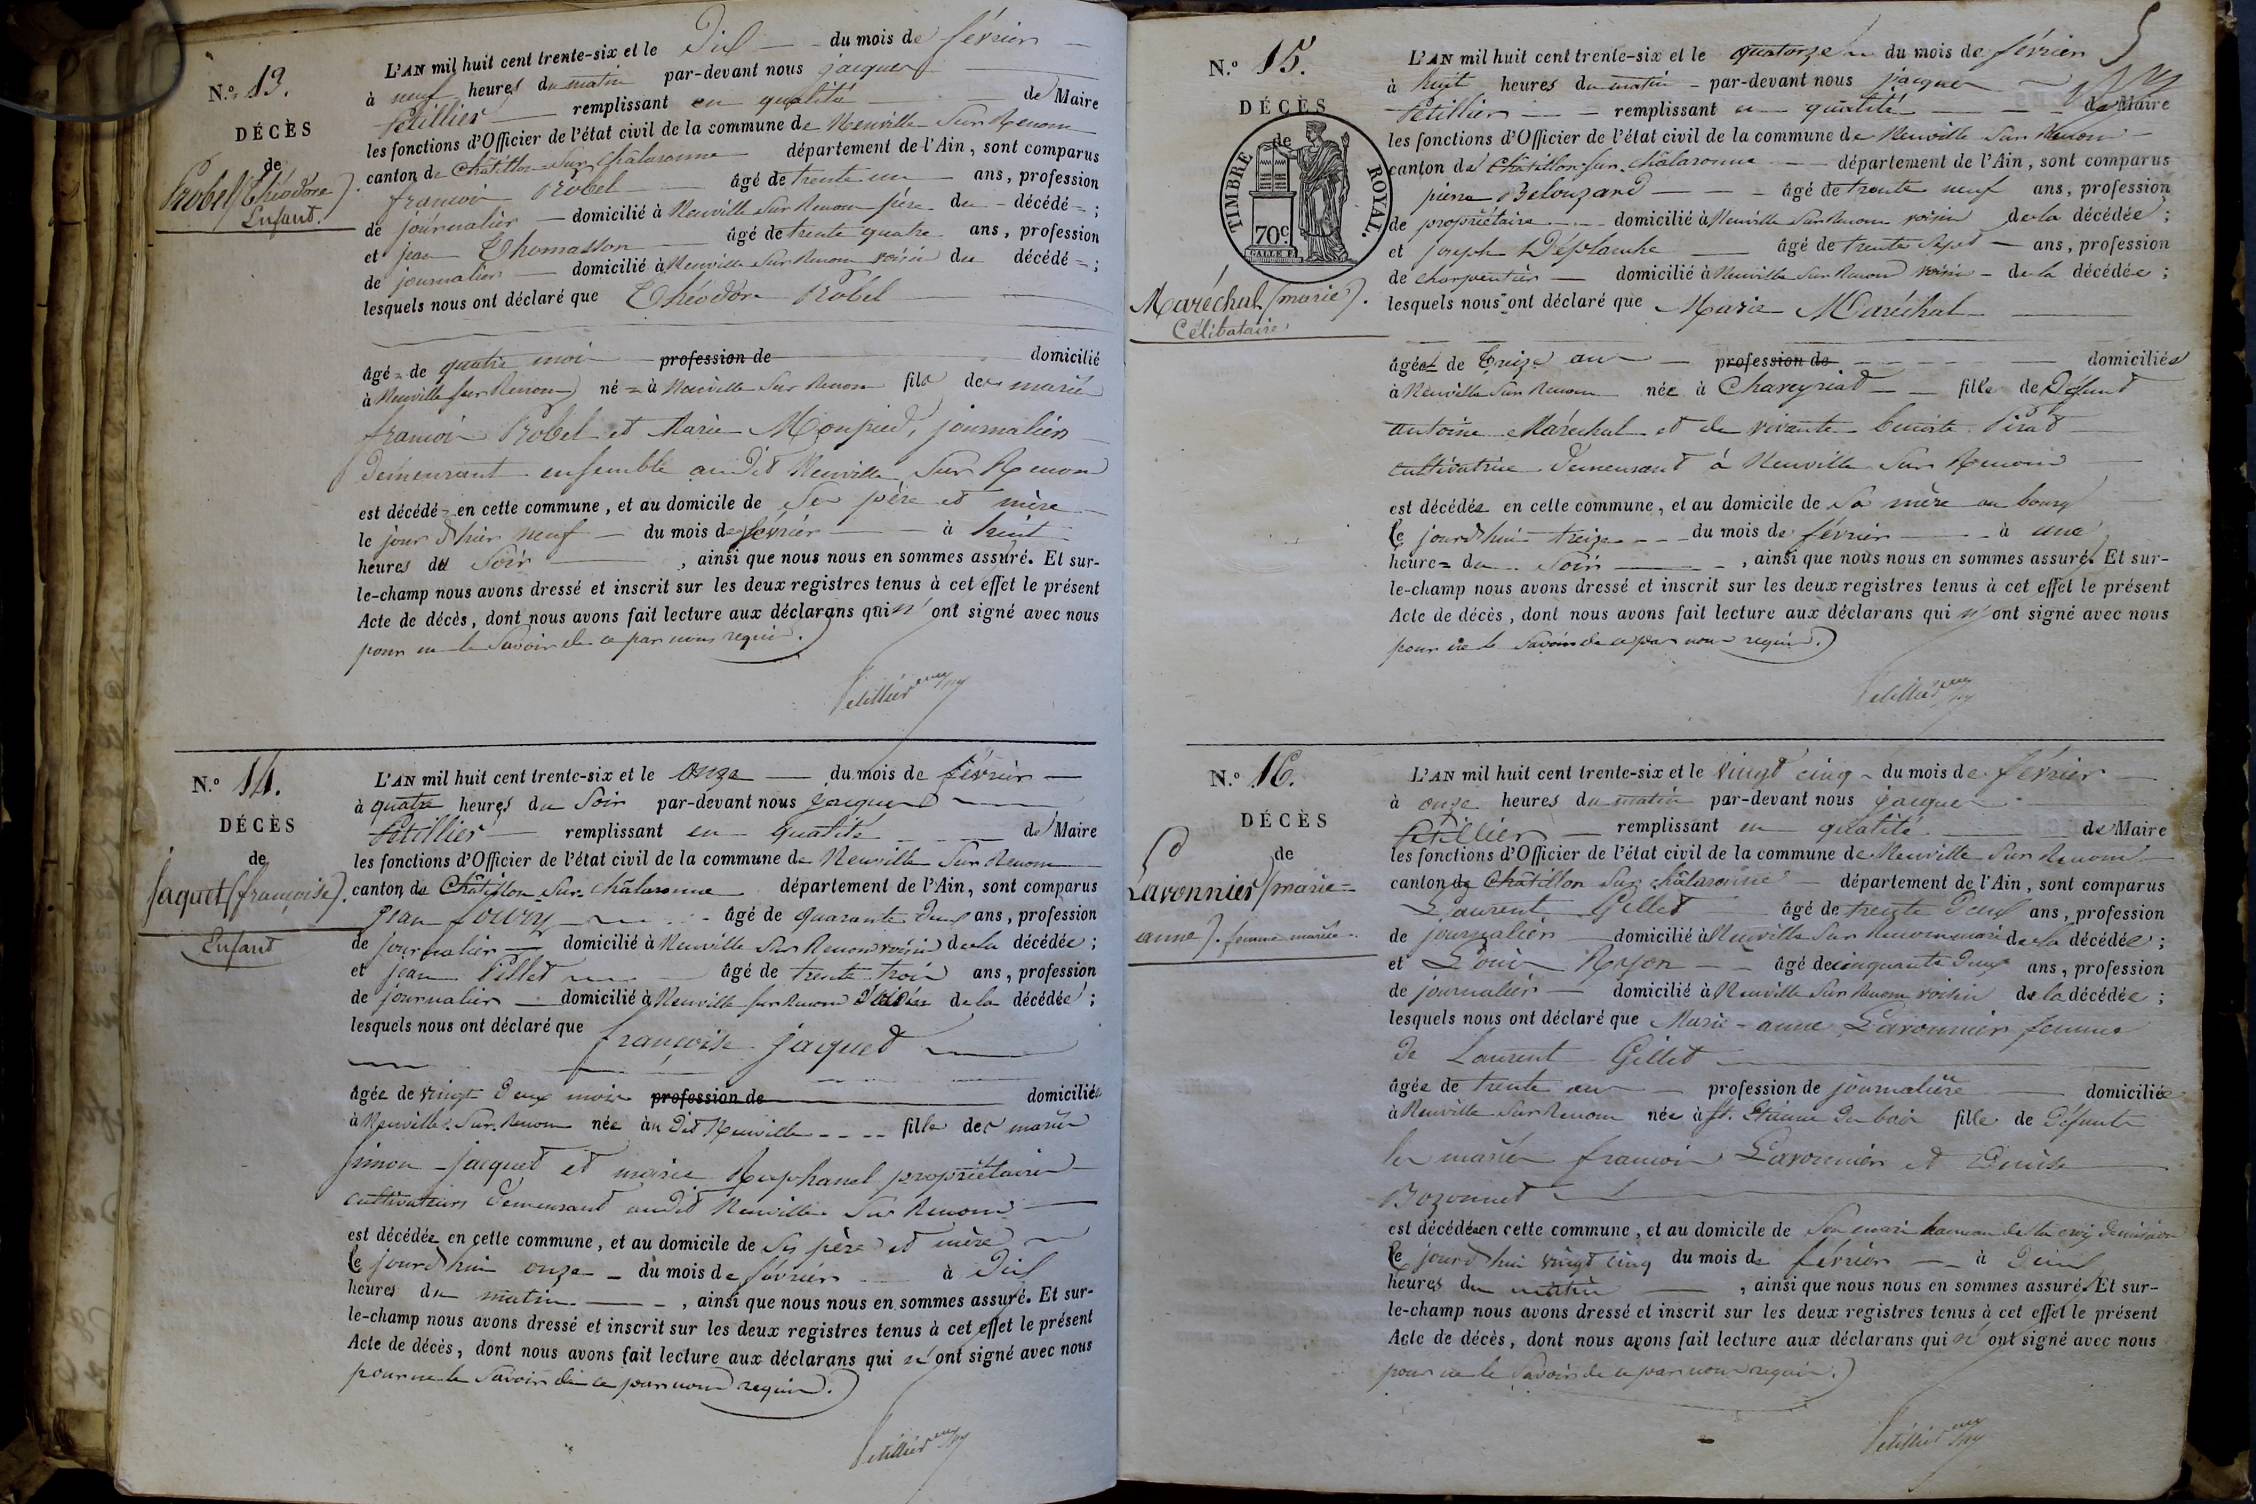 N.º 13.
DÉCÈS
de
Probel (Théodore).
Enfant.
L'AN mil huit cent trente-six et le Dix du mois de février
à neuf heures du matin par-devant nous jacques
Pétillier remplissant en qualité de Maire
les fonctions d'Officier de l'état civil de la commune de Neuville sur Renom
canton de Châtillon sur Châlaronne département de l'Ain, sont comparus
françois Probel âgé de trente un ans, profession
de journalier domicilié à Neuville sur Renom père du décédé ;
et jean Thomasson âgé de trente quatre ans, profession
de journalier domicilié à Neuville sur Renom voisin du décédé ;
lesquels nous ont déclaré que Théodore Probel
âgé de quatre mois profession de domicilié
à Neuville sur Renom né à Neuville sur Renom fils des mariés
françois Probel et Marie Monpied, journaliers
demeurant ensemble audit Neuville sur Renom
est décédé en cette commune, et au domicile de ses père et mère
le jour d'hier neuf du mois de février à huit
heures du soir , ainsi que nous nous en sommes assuré. Et sur-
le-champ nous avons dressé et inscrit sur les deux registres tenus à cet effet le présent
Acte de décès, dont nous avons fait lecture aux déclarans qui n'ont signé avec nous
pour ne le savoir de ce par nous requis.
Pétillier
N.º 14.
DÉCÈS
de
Jaquet (françoise).
Enfant
L'AN mil huit cent trente-six et le onze du mois de février
à quatre heures du soir par-devant nous jacques
Pétillier remplissant en qualité de Maire
les fonctions d'Officier de l'état civil de la commune de Neuville sur Renom
canton de Châtillon sur Châlaronne département de l'Ain, sont comparus
jean âgé de quarante deux ans, profession
de journalier domicilié à Neuville sur Renom voisin de la décédée ;
et jean Pillet âgé de trente trois ans, profession
de journalier domicilié à Neuville sur Renom de la décédée ;
lesquels nous ont déclaré que françoise jacquet
âgée de vingt deux mois profession de domiciliée
à Neuville sur Renom née au dit Neuville fille des mariés
simon jacquet et marie Raphanel propriétaires
cultivateurs demeurant audit Neuville sur Renom
est décédée en cette commune, et au domicile de ses père et mère
le jourd'hui onze du mois de février à Dix
heures du matin , ainsi que nous nous en sommes assuré. Et sur-
le-champ nous avons dressé et inscrit sur les deux registres tenus à cet effet le présent
Acte de décès, dont nous avons fait lecture aux déclarans qui n'ont signé avec nous
pour ne le savoir de ce par nous requis.
Pétillier
5
N.º 15.
DÉCÈS
de
TIMBRE ROYAL.
70c.
Maréchal (marie).
Célibataire.
L'AN mil huit cent trente-six et le quatorze du mois de février
à huit heures du matin par-devant nous jacques
Pétillier remplissant en qualité de Maire
les fonctions d'Officier de l'état civil de la commune de Neuville sur Renom
canton de Châtillon sur Châlaronne département de l'Ain, sont comparus
pierre Belouzard âgé de trente neuf ans, profession
de propriétaire domicilié à Neuville sur Renom voisin de la décédée ;
et joseph Déplanche âgé de trente sept ans, profession
de charpentier domicilié à Neuville sur Renom voisin de la décédée ;
lesquels nous ont déclaré que Marie Maréchal
âgée de treize ans profession de domiciliée
à Neuville sur Renom née à Chaveyriat fille de Défunt
antoine Maréchal et de vivante benoite Pirat
cultivatrice demeurant à Neuville sur Renom
est décédée en cette commune, et au domicile de sa mère au bourg
le jourd'hui treize du mois de février à une
heure du soir , ainsi que nous nous en sommes assuré. Et sur-
le-champ nous avons dressé et inscrit sur les deux registres tenus à cet effet le présent
Acte de décès, dont nous avons fait lecture aux déclarans qui n'ont signé avec nous
pour ne le savoir de ce par nous requis.
Pétillier
N.º 16.
DÉCÈS
de
Lavonnier (marie=
anne). femme mariée.
L'AN mil huit cent trente-six et le vingt cinq du mois de février
à onze heures du matin par-devant nous jacques
Pétillier remplissant en qualité de Maire
les fonctions d'Officier de l'état civil de la commune de Neuville sur Renom
canton de Châtillon sur Châlaronne département de l'Ain, sont comparus
Laurent Gillet âgé de trente deux ans, profession
de journalier domicilié à Neuville sur Renom mari de la décédée ;
et Louis Royon âgé de cinquante deux ans, profession
de journalier domicilié à Neuville sur Renom voisin de la décédée ;
lesquels nous ont déclaré que Marie-anne Lavonnier femme
de Laurent Gillet
âgée de trente ans profession de journalière domiciliée
à Neuville sur Renom née à St. Etienne du bois fille de Défunts
les mariés françois Lavonnier et Denise
Bozonnet
est décédée en cette commune, et au domicile de son mari hameau de la
le jourd'hui vingt cinq du mois de février à deux
heures du matin , ainsi que nous nous en sommes assuré. Et sur-
le-champ nous avons dressé et inscrit sur les deux registres tenus à cet effet le présent
Acte de décès, dont nous avons fait lecture aux déclarans qui n'ont signé avec nous
pour ne le savoir de ce par nous requis.
Pétillier